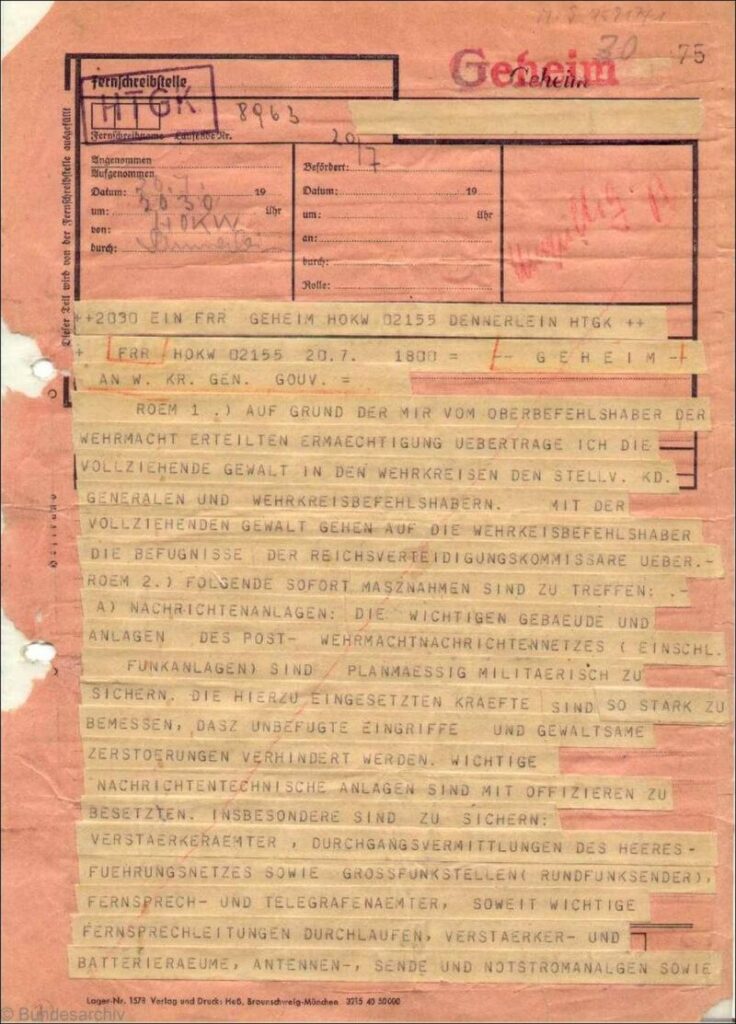 30
75
Geheim
Geheim
Fernschreibstelle
HTGK
8963
Fernschreibname Laufende Nr.
20/7
Dieser Teil wird von der Fernschreibstelle ausgefüllt
Angenommen
Aufgenommen
Datum: 20.7. 19
um: 2030 Uhr
von: HOKW
durch:
Befördert:
Datum: 19
um: Uhr
an:
durch:
Rolle:
++2030 EIN FRR GEHEIM HOKW 02155 DENNERLEIN HTGK ++
+ FRR HOKW 02155 20.7. 1800 = -- G E H E I M -
AN W. KR. GEN. GOUV. =
ROEM 1 .) AUF GRUND DER MIR VOM OBERBEFEHLSHABER DER
WEHRMACHT ERTEILTEN ERMAECHTIGUNG UEBERTRAGE ICH DIE
VOLLZIEHENDE GEWALT IN DEN WEHRKREISEN DEN STELLV. KD.
GENERALEN UND WEHRKREISBEFEHLSHABERN. MIT DER
VOLLZIEHENDEN GEWALT GEHEN AUF DIE WEHRKEISBEFEHLSHABER
DIE BEFUGNISSE DER REICHSVERTEIDIGUNGSKOMMISSARE UEBER.-
ROEM 2.) FOLGENDE SOFORT MASZNAHMEN SIND ZU TREFFEN: .-
A) NACHRICHTENANLAGEN: DIE WICHTIGEN GEBAEUDE UND
ANLAGEN DES POST- WEHRMACHTNACHRICHTENNETZES ( EINSCHL.
FUNKANLAGEN) SIND PLANMAESSIG MILITAERISCH ZU
SICHERN. DIE HIERZU EINGESETZTEN KRAEFTE SIND SO STARK ZU
BEMESSEN, DASZ UNBEFUGTE EINGRIFFE UND GEWALTSAME
ZERSTOERUNGEN VERHINDERT WERDEN. WICHTIGE
NACHRICHTENTECHNISCHE ANLAGEN SIND MIT OFFIZIEREN ZU
BESETZTEN. INSBESONDERE SIND ZU SICHERN:
VERSTAERKERAEMTER , DURCHGANGSVERMITTLUNGEN DES HEERES-
FUEHRUNGSNETZES SOWIE GROSSFUNKSTELLEN( RUNDFUNKSENDER),
FERNSPRECH- UND TELEGRAFENAEMTER, SOWEIT WICHTIGE
FERNSPRECHLEITUNGEN DURCHLAUFEN, VERSTAERKER- UND
BATTERIERAEUME, ANTENNEN-, SENDE UND NOTSTROMANALGEN SOWIE
Lager-Nr. 1578 Verlag und Druck: Heß, Braunschweig-München 3215 40 50000
© Bundesarchiv